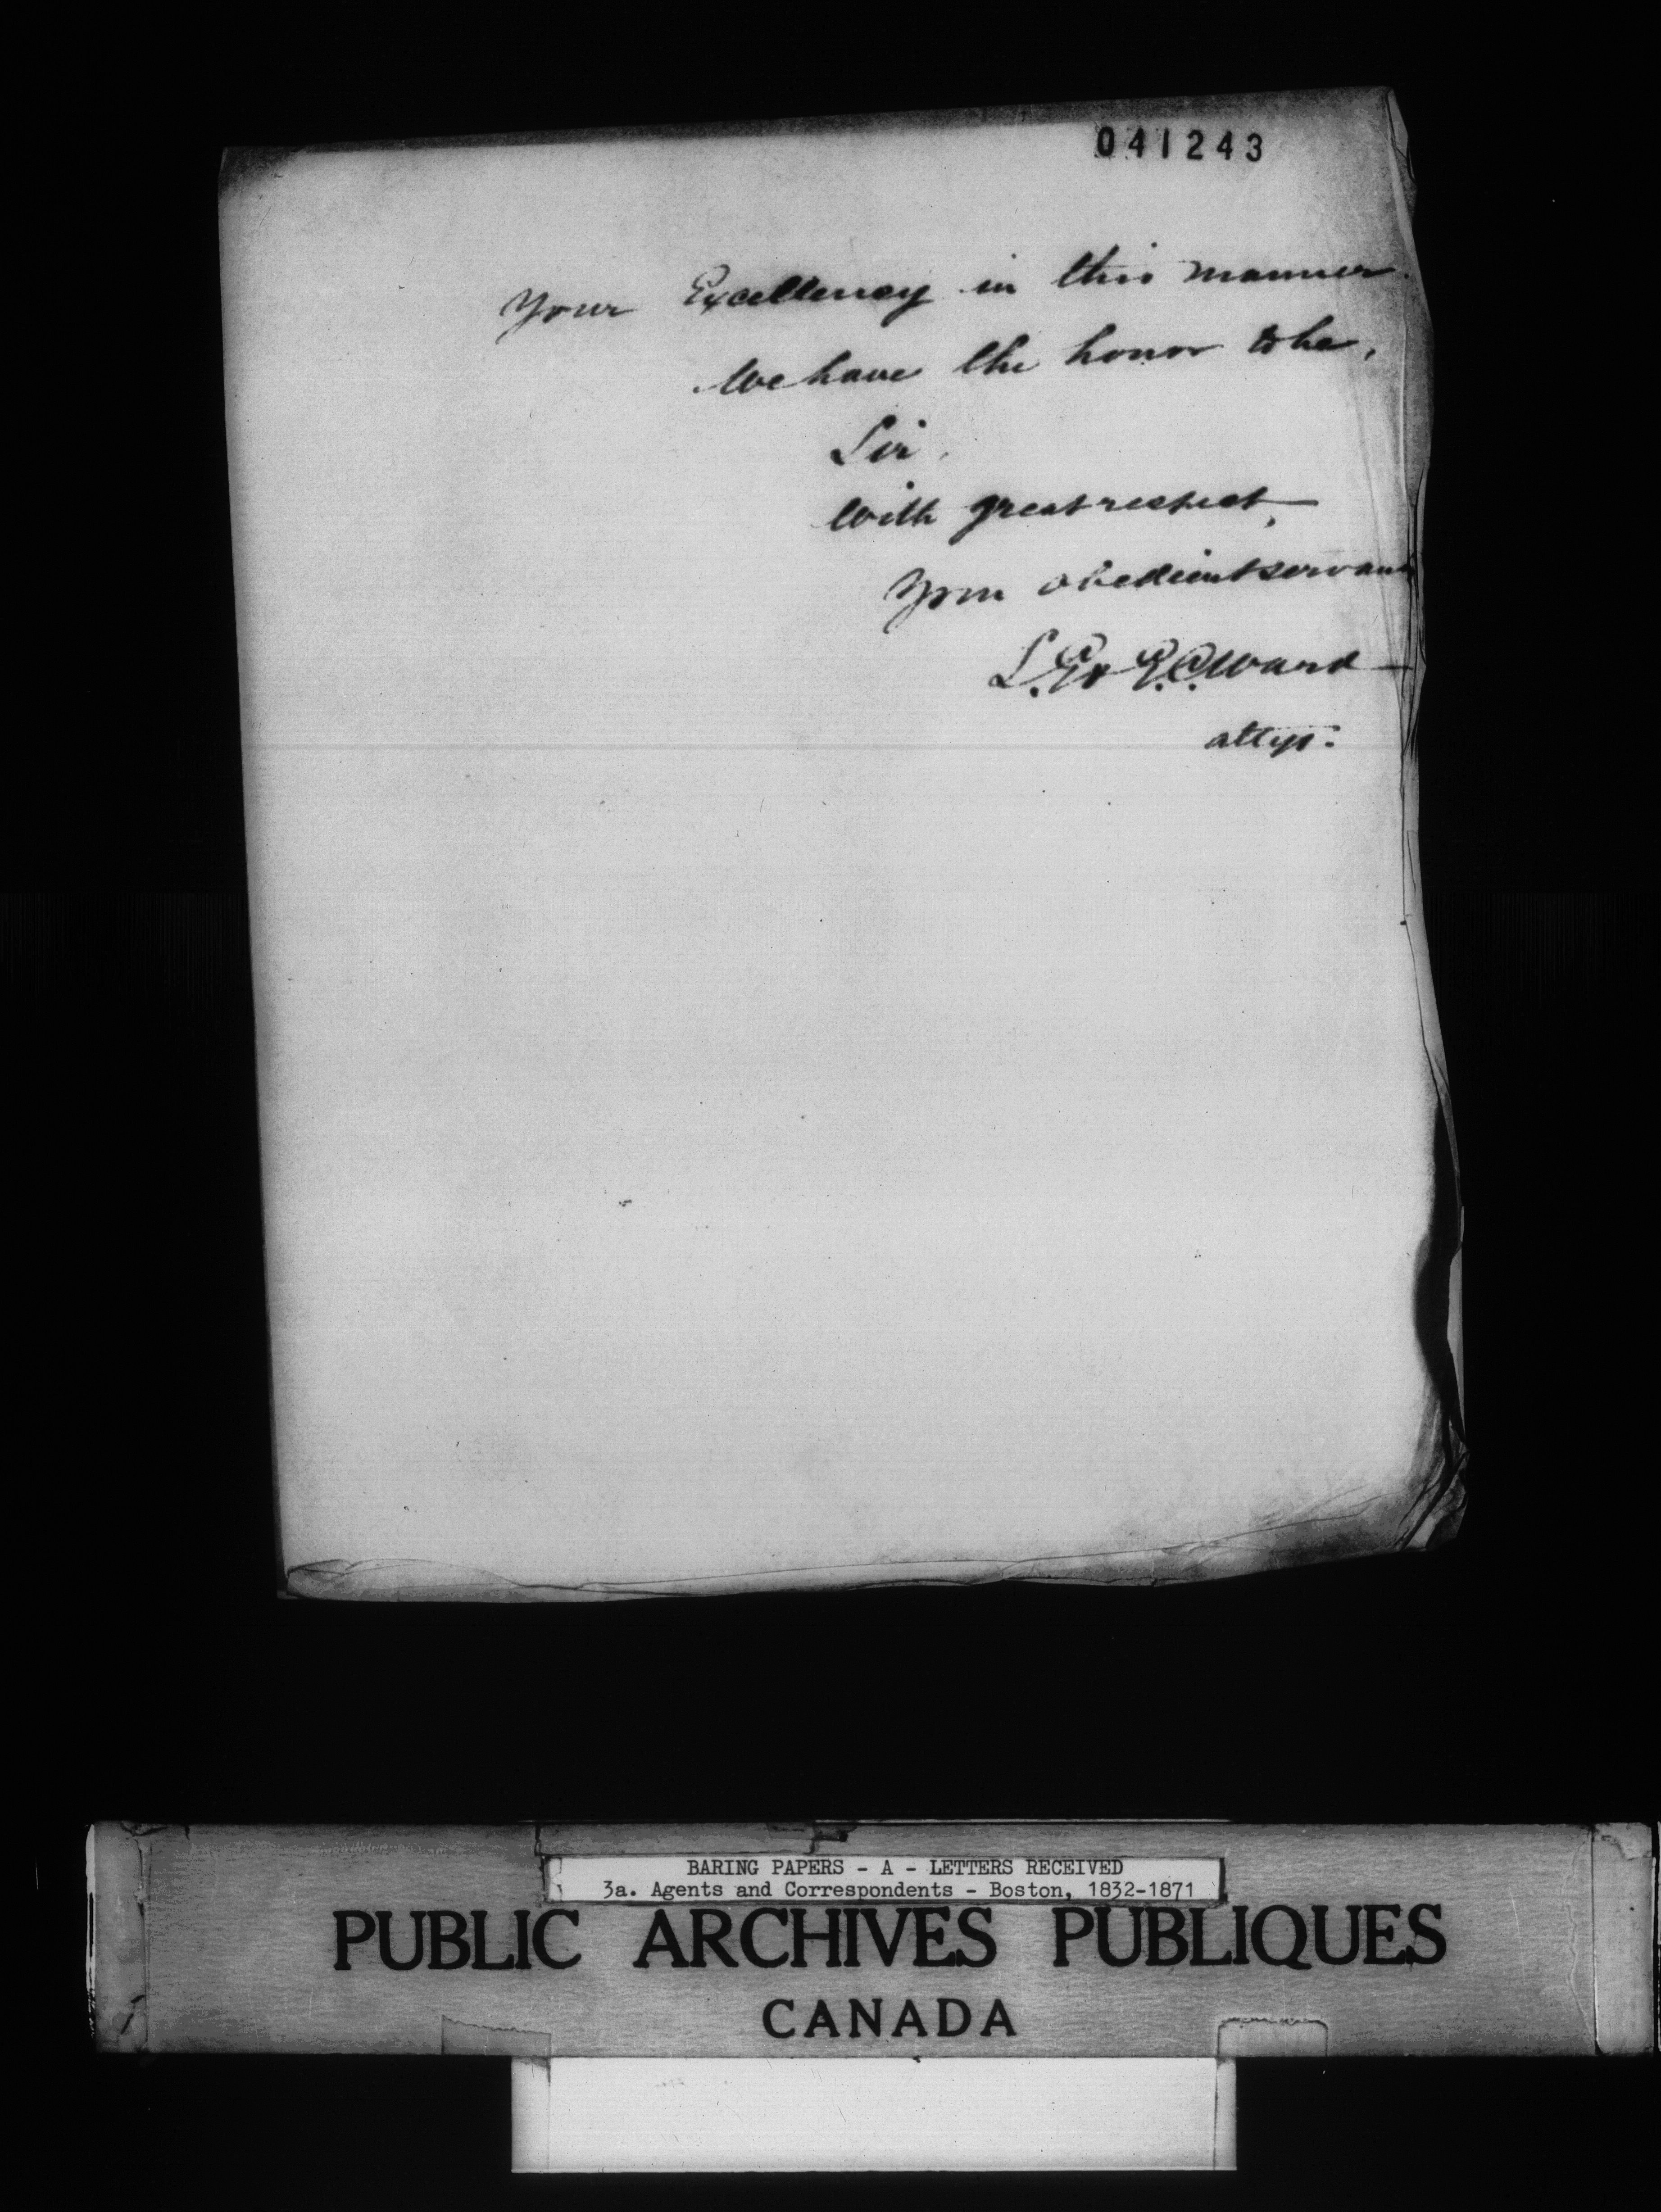 041243
Your Excellency in this manner.
We have the honor to be,
Sir,
With great respect,
Your obedient servants
S. G. & G. C. Ward
attys.
BARING PAPERS - A - LETTERS RECEIVED
3a. Agents and Correspondents - Boston, 1832-1871
PUBLIC ARCHIVES PUBLIQUES
CANADA